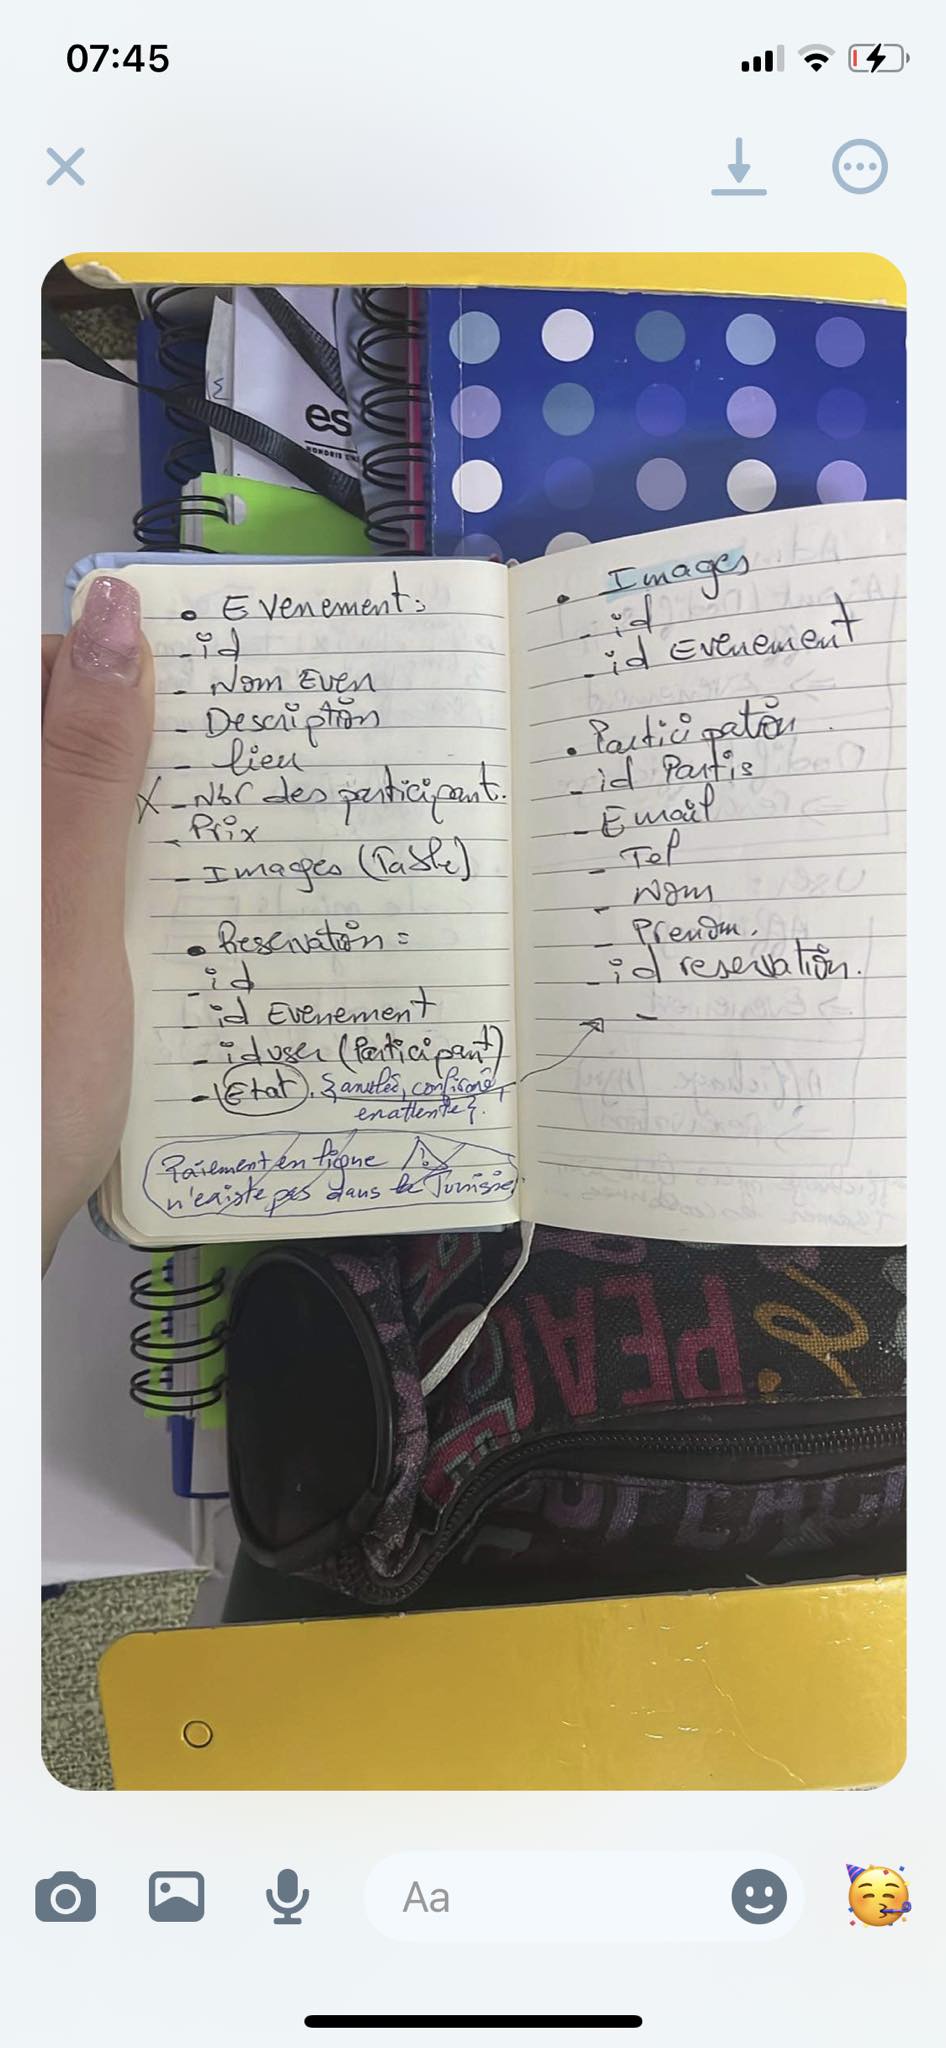 07:45
es
• Evenement:
- id
- Nom Even
- Description
- lieu
X - Nbr des participant.
- Prix
- Images (Table)
• Reservation =
- id
- id Evenement
- id user (Participant)
- Etat. {annulée, confirmé,
en attente}.
Paiement en ligne
n'existe pas dans la Tunisie
• Images
- id
- id Evenement
• Participation
- id Partis
- Email
- Tel
- Nom
- Prenom.
- id reservation.
-
PEACE
Aa